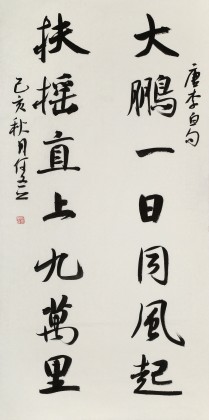 大鹏一日同風起
唐李白句
扶摇直上九萬里
己亥秋月何